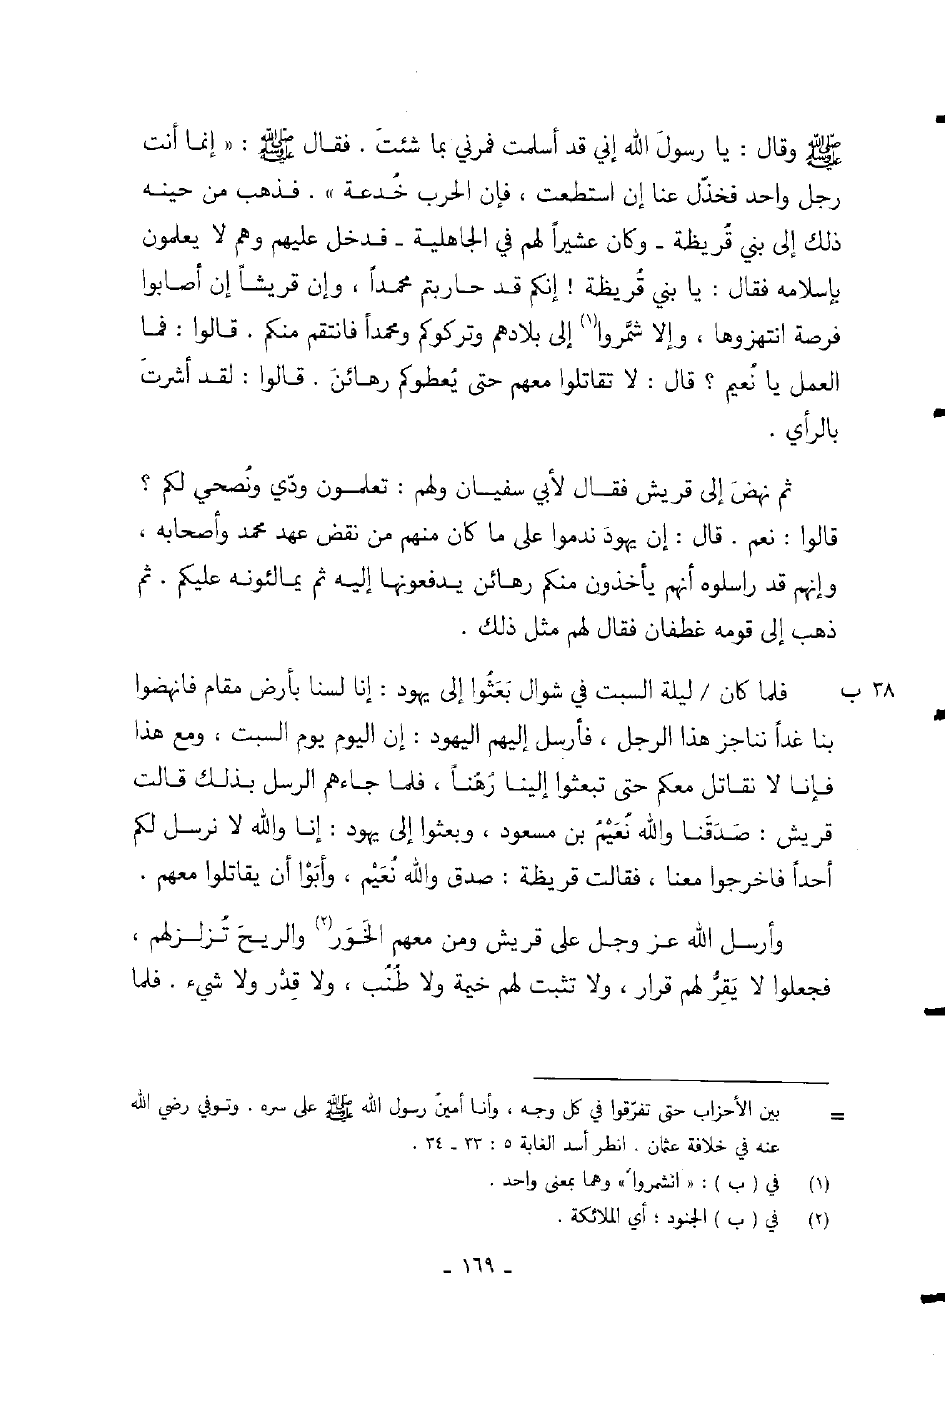 ﷺ وقال : يا رسولَ الله إني قد أسلمت فمرني بما شئتَ . فقال ﷺ : « إنما أنت
رجل واحد فخذّل عنا إن استطعت ، فإن الحرب خُدعة » . فذهب من حينه
ذلك إلى بني قُريظة ـ وكان عشيراً لهم في الجاهلية ـ فدخل عليهم وهم لا يعلمون
بإسلامه فقال : يا بني قُريظة ! إنكم قد حاربتم محمداً ، وإن قريشاً إن أصابوا
فرصة انتهزوها ، وإلا شَمَّروا(١) إلى بلادهم وتركوكم ومحمداً فانتقم منكم . قالوا : فما
العمل يا نُعيم ؟ قال : لا تقاتلوا معهم حتى يُعطوكم رهائنَ . قالوا : لقد أشرتَ
بالرأي .
ثم نهضَ إلى قريش فقال لأبي سفيان ولهم : تعلمون ودّي ونُصحي لكم ؟
قالوا : نعم . قال : إن يهودَ ندموا على ما كان منهم من نقض عهد محمد وأصحابه ،
وإنهم قد راسلوه أنهم يأخذون منكم رهائن يدفعونها إليه ثم يمالئونه عليكم . ثم
ذهب إلى قومه غطفان فقال لهم مثل ذلك .
٣٨ ب فلما كان / ليلة السبت في شوال بَعَثُوا إلى يهود : إنا لسنا بأرض مقام فانهضوا
بنا غداً نناجز هذا الرجل ، فأرسل إليهم اليهود : إن اليوم يوم السبت ، ومع هذا
فإنا لا نقاتل معكم حتى تبعثوا إلينا رُهُناً ، فلما جاءهم الرسل بذلك قالت
قريش : صَدَقَنا والله نُعَيْمُ بن مسعود ، وبعثوا إلى يهود : إنا والله لا نرسل لكم
أحداً فاخرجوا معنا ، فقالت قريظة : صدق والله نُعَيْم ، وأَبَوْا أن يقاتلوا معهم .
وأرسل الله عز وجل على قريش ومن معهم الخَوَر(٢) والريحَ تُزلزلهم ،
فجعلوا لا يَقِرُّ لهم قرار ، ولا تثبت لهم خيمة ولا طُنُب ، ولا قِدْر ولا شيء . فلما
= بين الأحزاب حتى تفرّقوا في كل وجه ، وأنا أمينُ رسول الله ﷺ على سره . وتوفي رضي الله
عنه في خلافة عثمان . انظر أسد الغابة ٥ : ٣٣ ـ ٣٤ .
(١) في ( ب ) : « انشمروا » وهما بمعنى واحد .
(٢) في ( ب ) الجنود ؛ أي الملائكة .
ـ ١٦٩ ـ